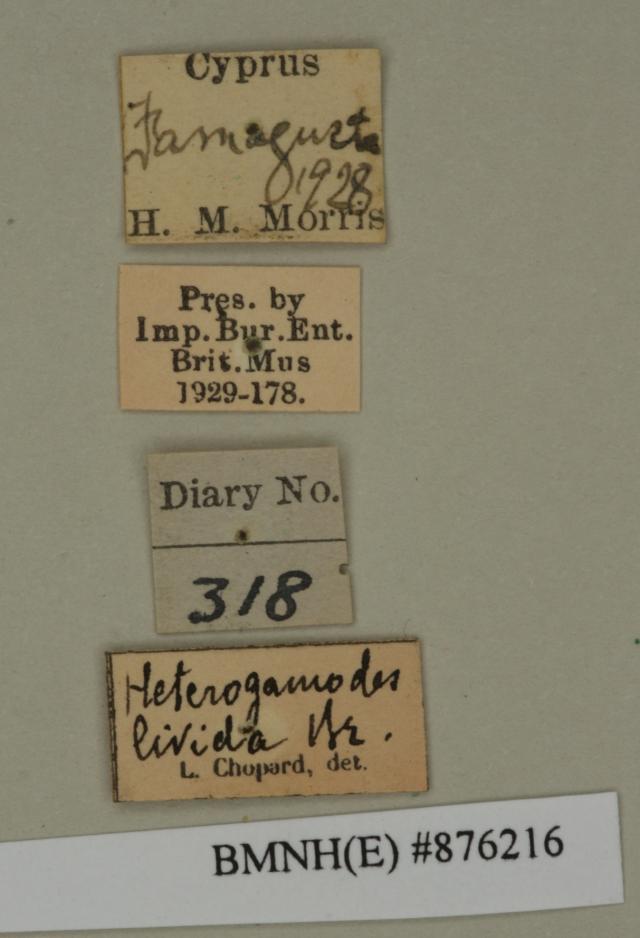 Cyprus
Famagusta
1928
H. M. Morris
Pres. by
Imp.Bur.Ent.
Brit.Mus
1929-178.
Diary No.
318
Heterogamodes
livida Br.
L. Chopard, det.
BMNH(E) #876216